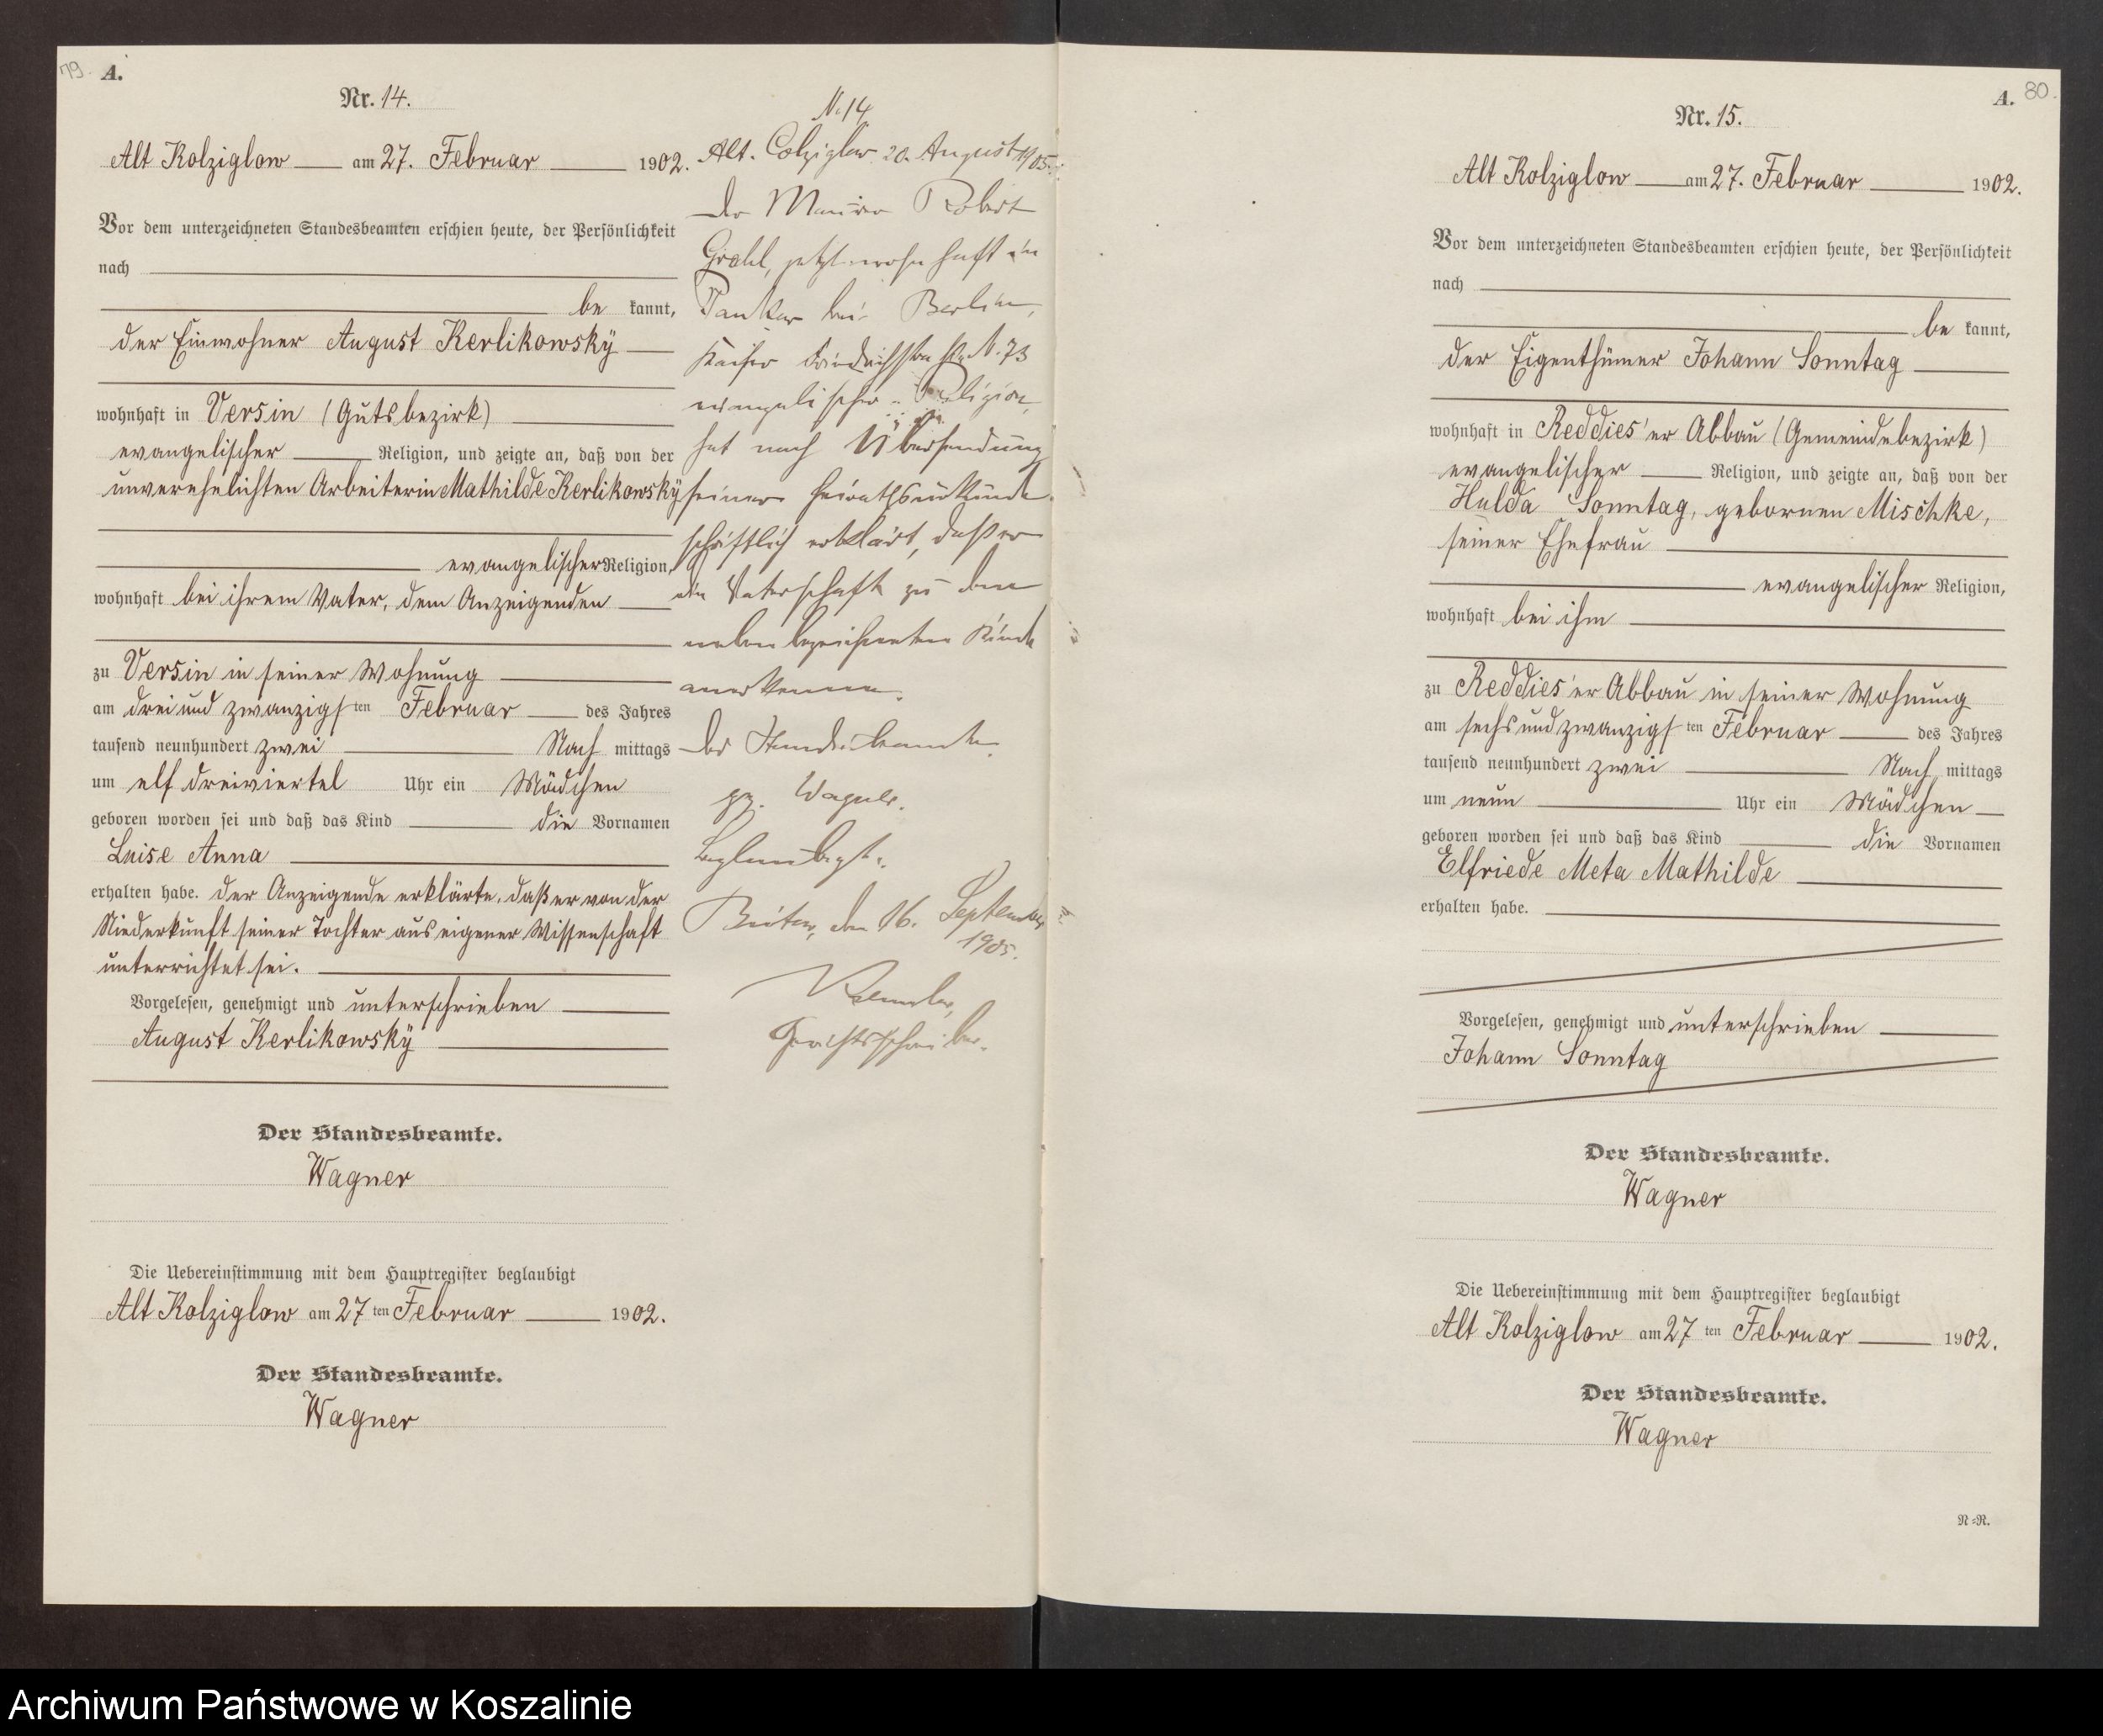 79. A.
Nr. 14.
Alt Kolziglow am 27. Februar 1902.
Vor dem unterzeichneten Standesbeamten erschien heute, der Persönlichkeit
nach
be kannt,
der Einwohner August Kerlikowsky
wohnhaft in Versin (Gutsbezirk)
evangelischer Religion, und zeigte an, daß von der
unverehelichten Arbeiterin Mathilde Kerlikowsky
evangelischer Religion,
wohnhaft bei ihrem Vater, dem Anzeigenden
zu Versin in seiner Wohnung
am dreiundzwanzigsten Februar des Jahres
tausend neunhundert zwei Nach mittags
um elf dreiviertel Uhr ein Mädchen
geboren worden sei und daß das Kind die Vornamen
Luise Anna
erhalten habe. Der Anzeigende erklärte, daß er von der
Niederkunft seiner Tochter aus eigener Wissenschaft
unterrichtet sei.
Vorgelesen, genehmigt und unterschrieben
August Kerlikowsky
Der Standesbeamte.
Wagner
Die Uebereinstimmung mit dem Hauptregister beglaubigt
Alt Kolziglow am 27 ten Februar 1902.
Der Standesbeamte.
Wagner
N. 14
Alt-Colziglow 20. August 1905.
Der Maurer Robert
jetzt wohnhaft in
Pankow bei Berlin,
Kaiser Friedrichstraße N. 73
evangelischer Religion,
hat nach Übersendung
seiner Heirathsurkunde
schriftlich erklärt, daß er
die Vaterschaft zu dem
nebenbezeichneten Kinde
anerkenne.
Der Standesbeamte.
gz. Wagner.
Beglaubigt.
Bütow, den 16. September
1905.
Gerichtsschreiber.
A. 80.
Nr. 15.
Alt Kolziglow am 27. Februar 1902.
Vor dem unterzeichneten Standesbeamten erschien heute, der Persönlichkeit
nach
be kannt,
der Eigenthümer Johann Sonntag
wohnhaft in Reddies'er Abbau (Gemeindebezirk)
evangelischer Religion, und zeigte an, daß von der
Hulda Sonntag, gebornen Mischke,
seiner Ehefrau
evangelischer Religion,
wohnhaft bei ihm
zu Reddies'er Abbau in seiner Wohnung
am sechsundzwanzigsten Februar des Jahres
tausend neunhundert zwei Nach mittags
um neun Uhr ein Mädchen
geboren worden sei und daß das Kind die Vornamen
Elfriede Meta Mathilde
erhalten habe.
Vorgelesen, genehmigt und unterschrieben
Johann Sonntag
Der Standesbeamte.
Wagner
Die Uebereinstimmung mit dem Hauptregister beglaubigt
Alt Kolziglow am 27 ten Februar 1902.
Der Standesbeamte.
Wagner
N=R.
Archiwum Państwowe w Koszalinie